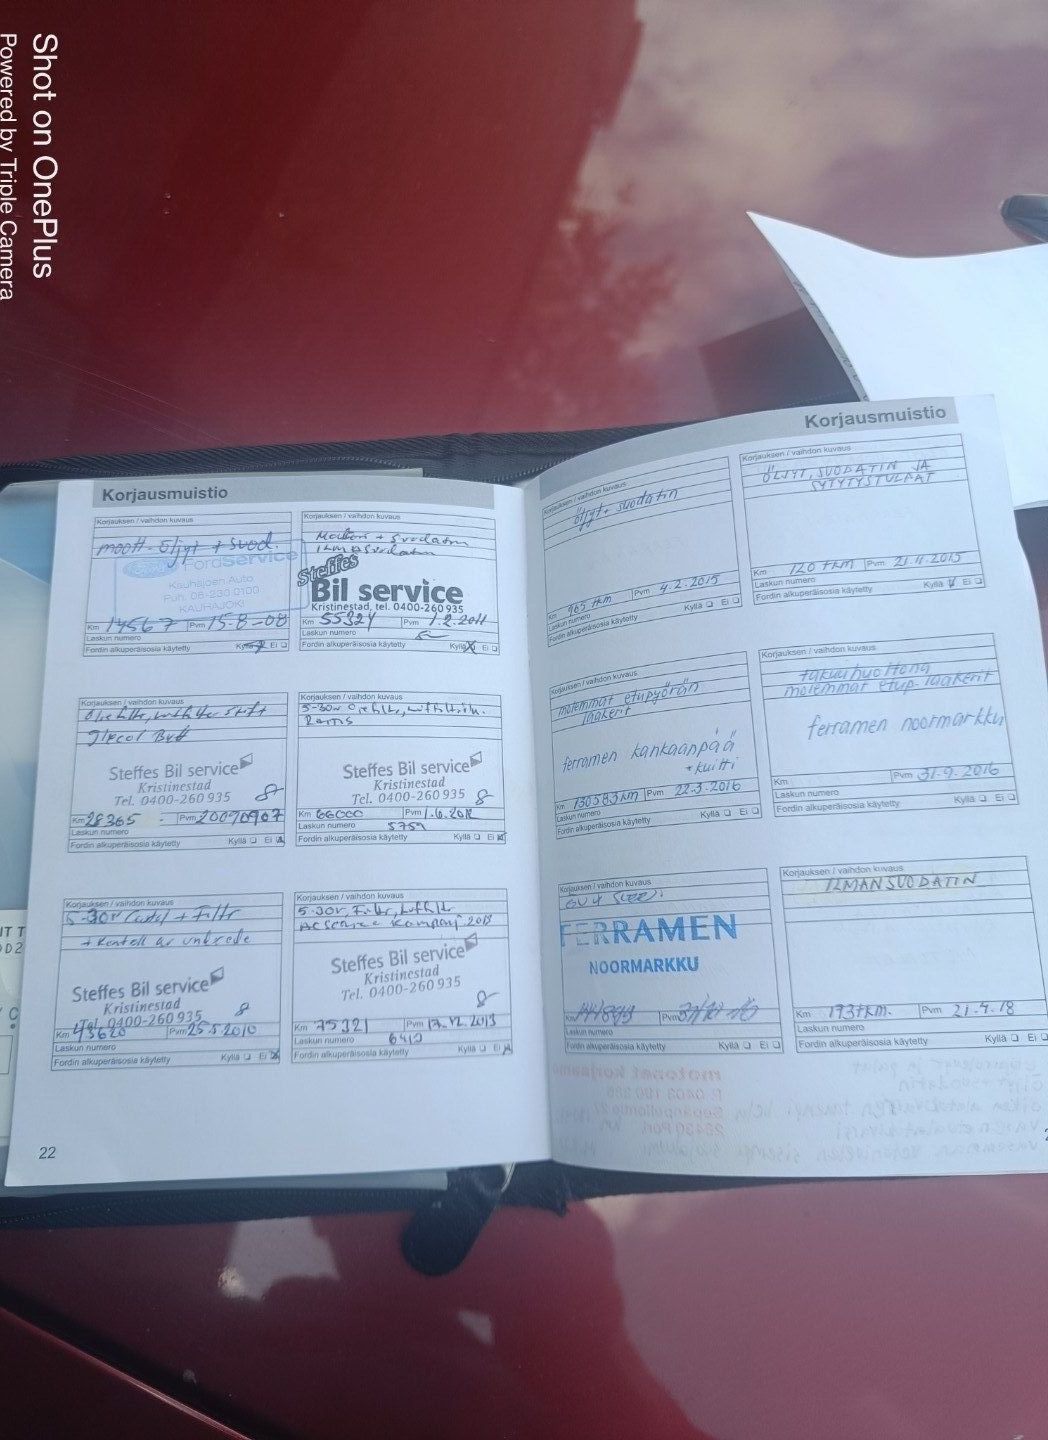 Shot on OnePlus
Powered by Triple Camera
Korjausmuistio
Korjauksen / vaihdon kuvaus
moott-öljyt + suod.
Ford FordService
Kauhajoen Auto
Puh. 06-230 0100
KAUHAJOKI
Km 14567 Pvm 15-8-08
Laskun numero
Fordin alkuperäisosia käytetty Kyllä Ei
Korjauksen / vaihdon kuvaus
+ Suodatin
Steffes
Bil service
Kristinestad, tel. 0400-260 935
Km 55324 Pvm 1.2.2011
Laskun numero
Fordin alkuperäisosia käytetty Kyllä Ei
Korjauksen / vaihdon kuvaus
Glycol Byt
Steffes Bil service
Kristinestad
Tel. 0400-260 935
Km 28365 Pvm 20090907
Laskun numero
Fordin alkuperäisosia käytetty Kyllä Ei
Korjauksen / vaihdon kuvaus
5-30W
Steffes Bil service
Kristinestad
Tel. 0400-260 935
Km 66000 Pvm 1.6.2012
Laskun numero 5759
Fordin alkuperäisosia käytetty Kyllä Ei
Korjauksen / vaihdon kuvaus
5-30W + Filter
Steffes Bil service
Kristinestad
Tel. 0400-260 935
Km 43620 Pvm 25.5.2010
Laskun numero
Fordin alkuperäisosia käytetty Kyllä Ei
Korjauksen / vaihdon kuvaus
5-30W, Filter,
2013
Steffes Bil service
Kristinestad
Tel. 0400-260 935
Km 75321 Pvm 17.12.2013
Laskun numero
Fordin alkuperäisosia käytetty Kyllä Ei
22
Korjausmuistio
Korjauksen / vaihdon kuvaus
öljyt + suodatin
Km Pvm 4.2.2015
Laskun numero
Fordin alkuperäisosia käytetty Kyllä Ei
Korjauksen / vaihdon kuvaus
ÖLJYT, SUODATIN JA
SYTYTYSTULPAT
Km 120 tkm Pvm 21.11.2015
Laskun numero
Fordin alkuperäisosia käytetty Kyllä Ei
Korjauksen / vaihdon kuvaus
molemmat etupyörän
laakerit
ferramen kankaanpää
+ kuitti
Km 130583 km Pvm 22.3.2016
Laskun numero
Fordin alkuperäisosia käytetty Kyllä Ei
Korjauksen / vaihdon kuvaus
takuuhuoltona
molemmat etup-laakerit
ferramen noormarkku
Km Pvm 31.9.2016
Laskun numero
Fordin alkuperäisosia käytetty Kyllä Ei
Korjauksen / vaihdon kuvaus
FERRAMEN
NOORMARKKU
Km Pvm
Laskun numero
Fordin alkuperäisosia käytetty Kyllä Ei
Korjauksen / vaihdon kuvaus
ILMANSUODATIN
Km 193 tkm. Pvm 21.4.18
Laskun numero
Fordin alkuperäisosia käytetty Kyllä Ei